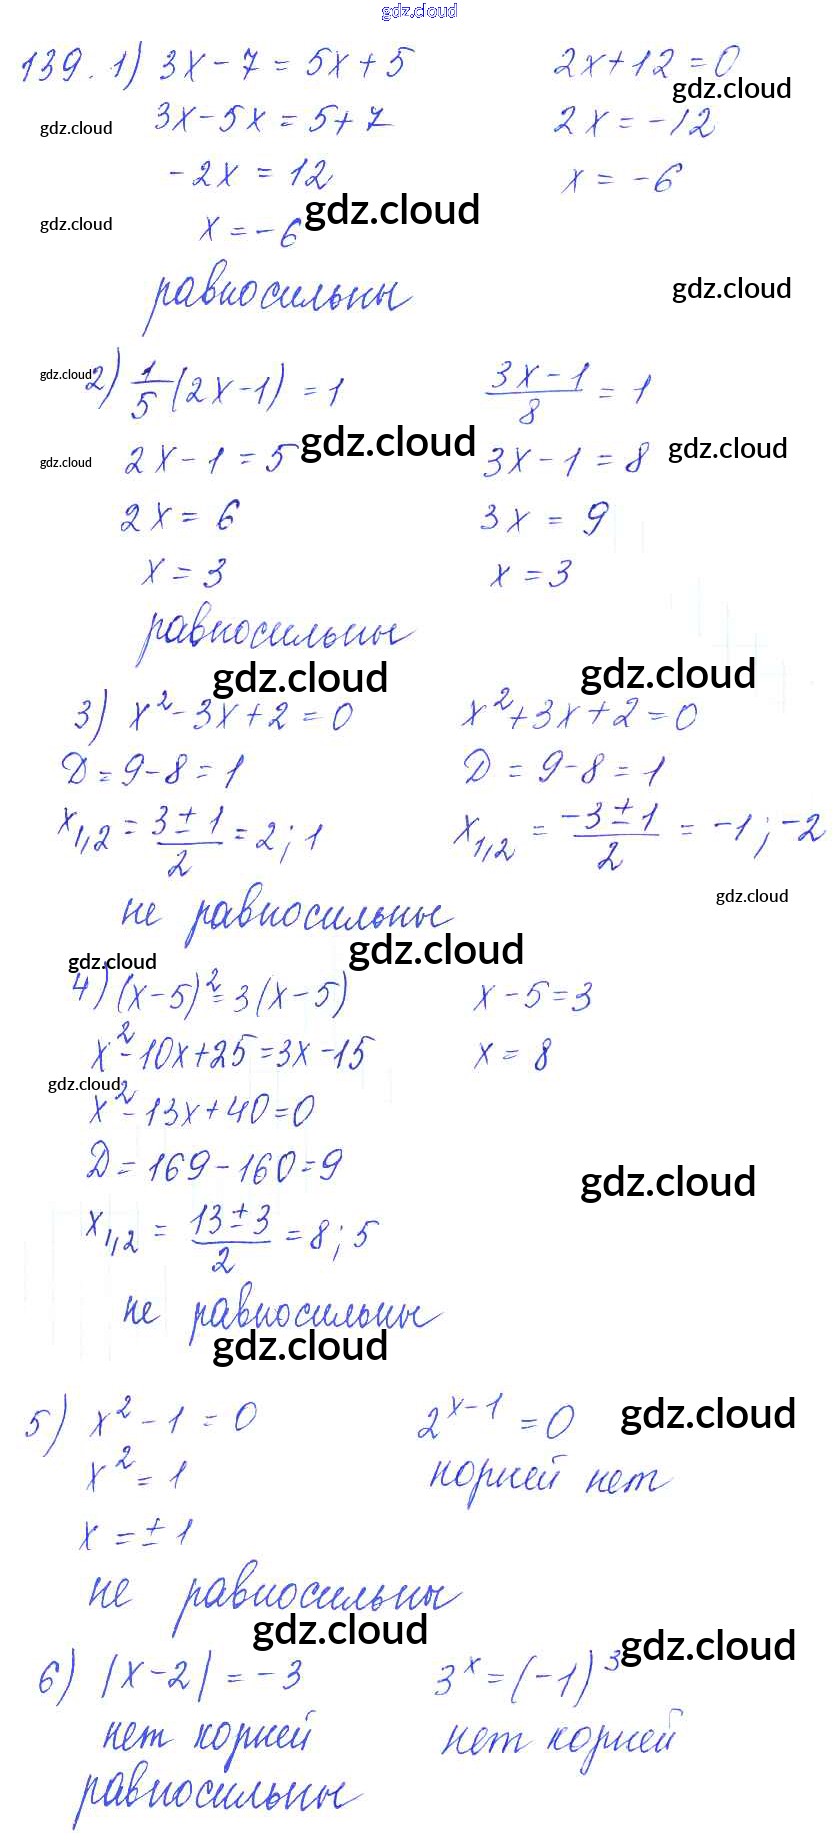 gdz.cloud
139. 1) 3x - 7 = 5x + 5    2x + 12 = 0
gdz.cloud
gdz.cloud 3x - 5x = 5 + 7    2x = -12
-2x = 12    x = -6
gdz.cloud
gdz.cloud x = -6
равносильны gdz.cloud
gdz.cloud 2) 1/5 (2x - 1) = 1    (3x - 1)/8 = 1
gdz.cloud gdz.cloud
gdz.cloud 2x - 1 = 5    3x - 1 = 8
2x = 6    3x = 9
x = 3    x = 3
равносильны
gdz.cloud gdz.cloud
3) x² - 3x + 2 = 0    x² + 3x + 2 = 0
D = 9 - 8 = 1    D = 9 - 8 = 1
x₁,₂ = (3 ± 1)/2 = 2; 1    x₁,₂ = (-3 ± 1)/2 = -1; -2
gdz.cloud
не равносильны
gdz.cloud gdz.cloud
4) (x - 5)² = 3(x - 5)    x - 5 = 3
x² - 10x + 25 = 3x - 15    x = 8
gdz.cloud
x² - 13x + 40 = 0
D = 169 - 160 = 9 gdz.cloud
x₁,₂ = (13 ± 3)/2 = 8; 5
не равносильны
gdz.cloud
5) x² - 1 = 0    2ˣ⁻¹ = 0 gdz.cloud
x² = 1    корней нет
x = ± 1
не равносильны
gdz.cloud gdz.cloud
6) |x - 2| = -3    3ˣ = (-1)³
нет корней    нет корней
равносильны